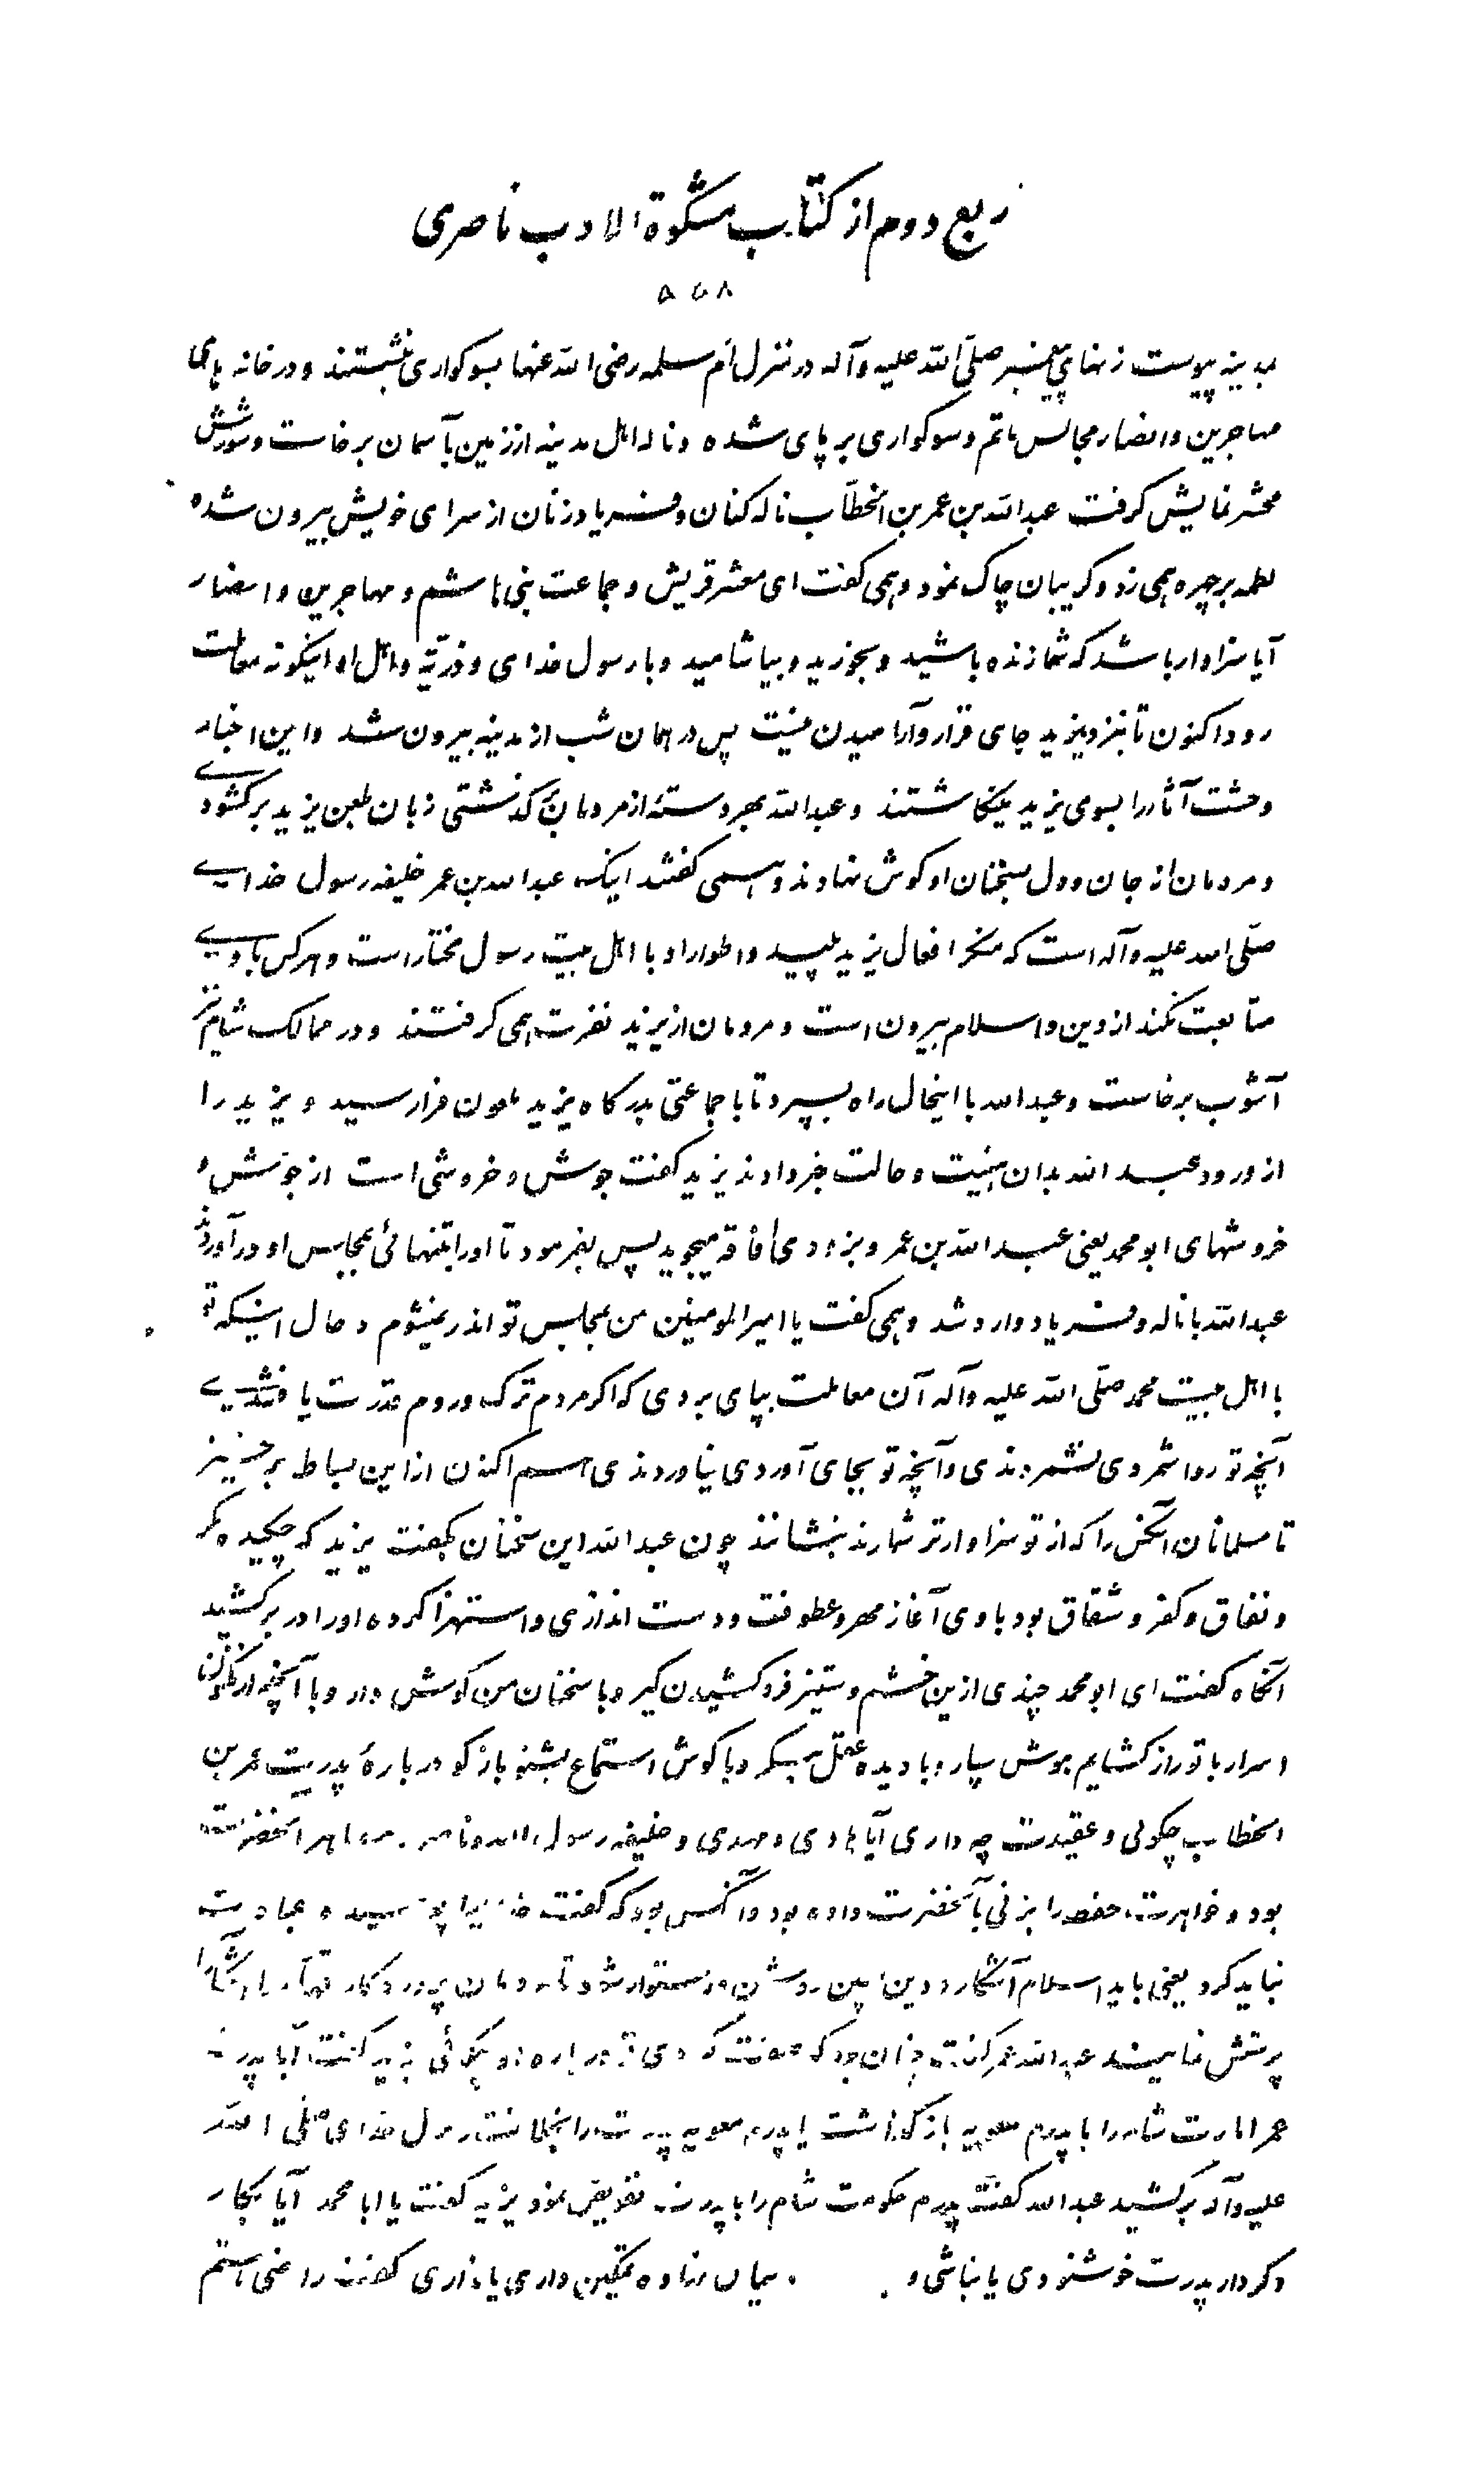 ربع دوم از کتاب مشکوة الادب ناصری
۵۵۸
مدینه پیوست زنهای پیغمبر صلّی الله علیه وآله در منزل اُم سلمه رضی الله عنها بسوکواری بنشستند و در خانه های
مهاجرین و انصار مجالس ماتم و سوکواری بر پای شده و ناله اهل مدینه از زمین بآسمان برخاست و شورش
محشر نمایش کرفت عبدالله بن عمر بن الخطاب ناله کنان و فریاد زنان از سرای خویش بیرون شده
لطمه بر چهره همی زد و کریبان چاک نمود و همی کفت ای معشر قریش و جماعت بنی هاشم و مهاجرین و انصار
آیا سزاوار باشد که شما زنده باشید و بخورید و بیاشامید و با رسول خدای و ذریّه و اهل او اینکونه معاملت
رود اکنون تا بنزد یزید جای قرار و آرامیدن نیست پس در همان شب از مدینه بیرون شد و این اخبار
وحشت آثار را بسوی یزید بنکاشتند و عبدالله بهر دسته از مردمان که کذشتی زبان بطعن یزید برکشودی
و مردمان از جان و دل بسخنان او کوش نهادند و همی کفتند اینک عبدالله بن عمر خلیفه رسول خدای
صلّی الله علیه وآله است که منکر افعال یزید پلید و اطوار او با اهل بیت رسول مختار است و هر کس با وی
متابعت نکند از دین و اسلام بیرون است و مردمان از یزید نفرت همی کرفتند و در ممالک شام نیز
آشوب برخاست و عبدالله با اینحال راه بسپرد تا با جماعتی بدرکاه یزید ملعون فرا رسید و یزید را
از ورود عبدالله بدان هیئت و حالت خبر دادند یزید کفت جوش و خروشی است از جوشش و
خروشهای ابو محمد یعنی عبدالله بن عمر و بزودی افاقه میجوید پس بفرمود تا او را بتنهائی بمجلس او درآوردند
عبدالله با ناله و فریاد وارد شد و همی کفت یا امیرالمومنین من بمجلس تو اندر نمیشوم و حال اینکه تو
با اهل بیت محمد صلّی الله علیه وآله آن معاملت بپای بردی که اکر مردم ترک و روم قدرت یافتندی
آنچه تو روا شمردی نشمردندی و آنچه تو بجای آوردی نیاوردندی هم اکنون ازاین بساط برخیز
تا مسلمانان آنکس را که از تو سزاوارتر شمارند بنشانند چون عبدالله این سخنان بکفت یزید که چکیده مکر
و نفاق و کفر و شقاق بود با وی آغاز مهر و عطوفت و دست اندازی و استهزا کرده او را در بر کشید
آنکاه کفت ای ابو محمد چندی ازین خشم و ستیز فروکشیدن کیر و با سخنان من کوش دار و با آنچه از
اسرار با تو راز کشایم هوش سپار و با دیده عقل بنکر و با کوش استماع بشنو بازکو درباره پدرت عمر بن
الخطاب چکوئی و عقیدت چه داری آیا هادی و مهدی و خلیفه رسول الله و ناصر آنحضرت
بود و خواهرت حفصه را بزنی بآنحضرت داده بود و آنکس بود که کفت خدا را پوشیده عبادت
نباید کرد یعنی باید اسلام آشکار و دین مبین روشن و استوار شود تا مردمان پروردکار قهار را آشکارا
پرستش نمایند عبدالله عمر کفت چنان بود که صفت کردی تو درباره او چکوئی یزید کفت آیا پدرت
عمر امارت شام را با پدرم معویه بازکذاشت یا پدرم معویه پدرت را بخلافت رسول خدای صلی الله
علیه وآله برکشید عبدالله کفت پدرم حکومت شام را با پدرت تفویض نمود یزید کفت یا ابا محمد آیا بکار
و کردار پدرت خوشنودی یا نباشی و پیمان نهاده تمکین داری یا نداری کفت راضی هستم